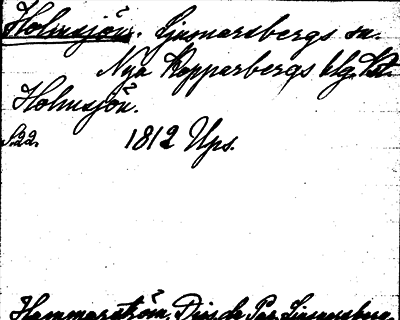 Holmsjön. Ljusnarsbergs sn.
Nya Kopparbergs blg. Kst.
Holmsjön.
S.22. 1812 Ups.
Hammarström, Diss de Par Ljusnarsberg.